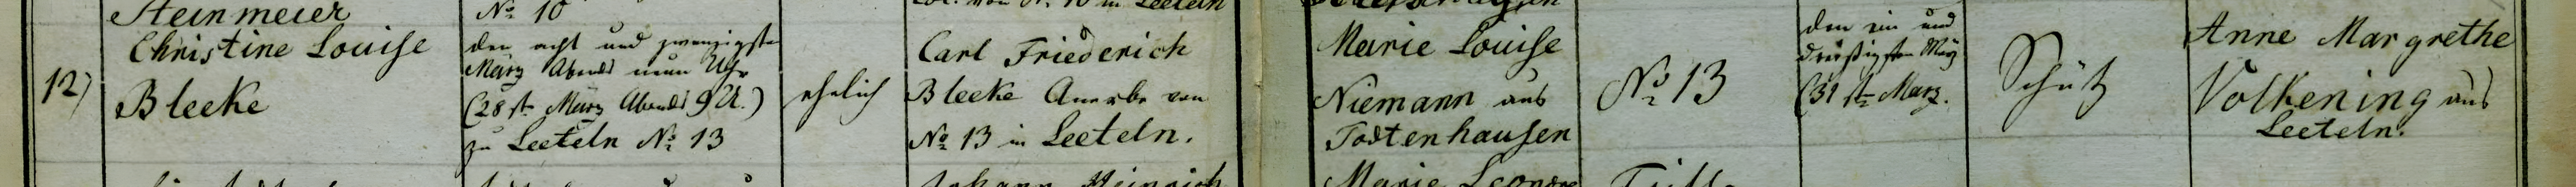 Steinmeier
No 10
Christine Louise
Bleeke
12)
den acht und zwanzigsten
März Abends neun Uhr
(28st. März Abends 9 U.)
zu Leeteln No 13
ehelich
Carl Friederich
Bleeke Anerbe von
No 13 in Leeteln.
Marie Louise
Niemann aus
Todtenhausen
No 13
den ein und
dreißigsten März
(31 st. März.
Schütz
Anne Margrethe
Volkening aus
Leeteln.
Johann Heinrich
Marie